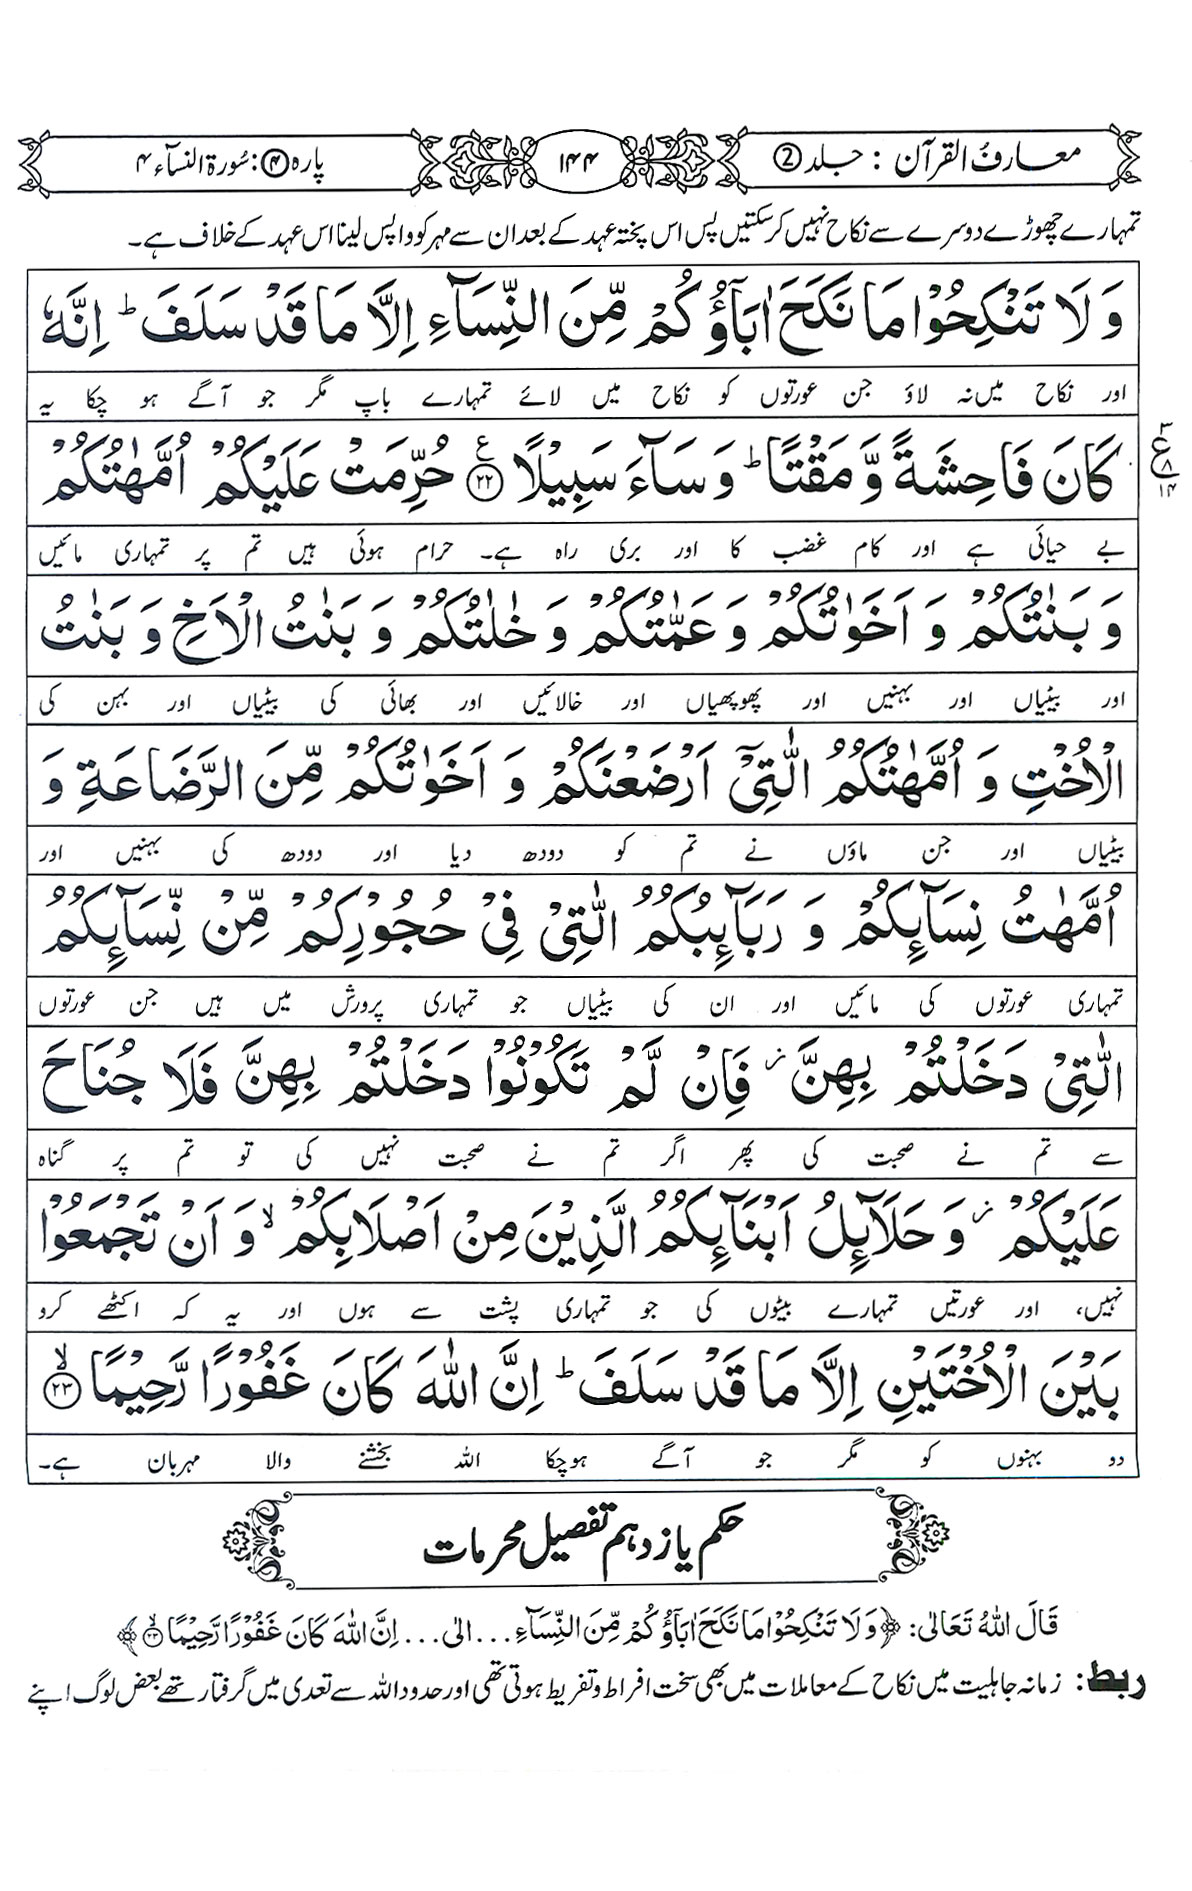 معارف القرآن : جلد ②
۱۴۴
پارہ ④ : سُورۃ النسآء ۴
تمہارے چھوڑے دوسرے سے نکاح نہیں کر سکتیں پس اس پختہ عہد کے بعد ان سے مہر کو واپس لینا اس عہد کے خلاف ہے۔
وَ لَا تَنْكِحُوْا مَا نَكَحَ اٰبَآؤُكُمْ مِّنَ النِّسَآءِ اِلَّا مَا قَدْ سَلَفَ ؕ اِنَّهٗ
اور نکاح میں نہ لاؤ جن عورتوں کو نکاح میں لائے تمہارے باپ مگر جو آگے ہو چکا یہ
كَانَ فَاحِشَةً وَّ مَقْتًا ؕ وَ سَآءَ سَبِيْلًا ﴿۲۲﴾ ع حُرِّمَتْ عَلَيْكُمْ اُمَّهٰتُكُمْ
۳
ع
۸
۱۴
بے حیائی ہے اور کام غضب کا اور بری راہ ہے۔ حرام ہوئی ہیں تم پر تمہاری مائیں
وَ بَنٰتُكُمْ وَ اَخَوٰتُكُمْ وَ عَمّٰتُكُمْ وَ خٰلٰتُكُمْ وَ بَنٰتُ الْاَخِ وَ بَنٰتُ
اور بیٹیاں اور بہنیں اور پھوپھیاں اور خالائیں اور بھائی کی بیٹیاں اور بہن کی
الْاُخْتِ وَ اُمَّهٰتُكُمُ الّٰتِيْۤ اَرْضَعْنَكُمْ وَ اَخَوٰتُكُمْ مِّنَ الرَّضَاعَةِ وَ
بیٹیاں اور جن ماؤں نے تم کو دودھ دیا اور دودھ کی بہنیں اور
اُمَّهٰتُ نِسَآئِكُمْ وَ رَبَآئِبُكُمُ الّٰتِيْ فِيْ حُجُوْرِكُمْ مِّنْ نِّسَآئِكُمُ
تمہاری عورتوں کی مائیں اور ان کی بیٹیاں جو تمہاری پرورش میں ہیں جن عورتوں
الّٰتِيْ دَخَلْتُمْ بِهِنَّ ؗ فَاِنْ لَّمْ تَكُوْنُوْا دَخَلْتُمْ بِهِنَّ فَلَا جُنَاحَ
سے تم نے صحبت کی پھر اگر تم نے صحبت نہیں کی تو تم پر گناہ
عَلَيْكُمْ ؗ وَ حَلَآئِلُ اَبْنَآئِكُمُ الَّذِيْنَ مِنْ اَصْلَابِكُمْ ۙ وَ اَنْ تَجْمَعُوْا
نہیں، اور عورتیں تمہارے بیٹوں کی جو تمہاری پشت سے ہوں اور یہ کہ اکٹھے کرو
بَيْنَ الْاُخْتَيْنِ اِلَّا مَا قَدْ سَلَفَ ؕ اِنَّ اللّٰهَ كَانَ غَفُوْرًا رَّحِيْمًا ۙ﴿۲۳﴾
دو بہنوں کو مگر جو آگے ہوچکا اللہ بخشنے والا مہربان ہے۔
حکم یازدہم تفصیل محرمات
قَالَ اللّٰهُ تَعَالٰى: ﴿وَلَا تَنْكِحُوْا مَا نَكَحَ اٰبَآؤُكُمْ مِّنَ النِّسَآءِ... الٰى... اِنَّ اللّٰهَ كَانَ غَفُوْرًا رَّحِيْمًا ۙ۲۳﴾
ربط: زمانہ جاہلیت میں نکاح کے معاملات میں بھی سخت افراط و تفریط ہوتی تھی اور حدود اللہ سے تعدی میں گرفتار تھے بعض لوگ اپنے